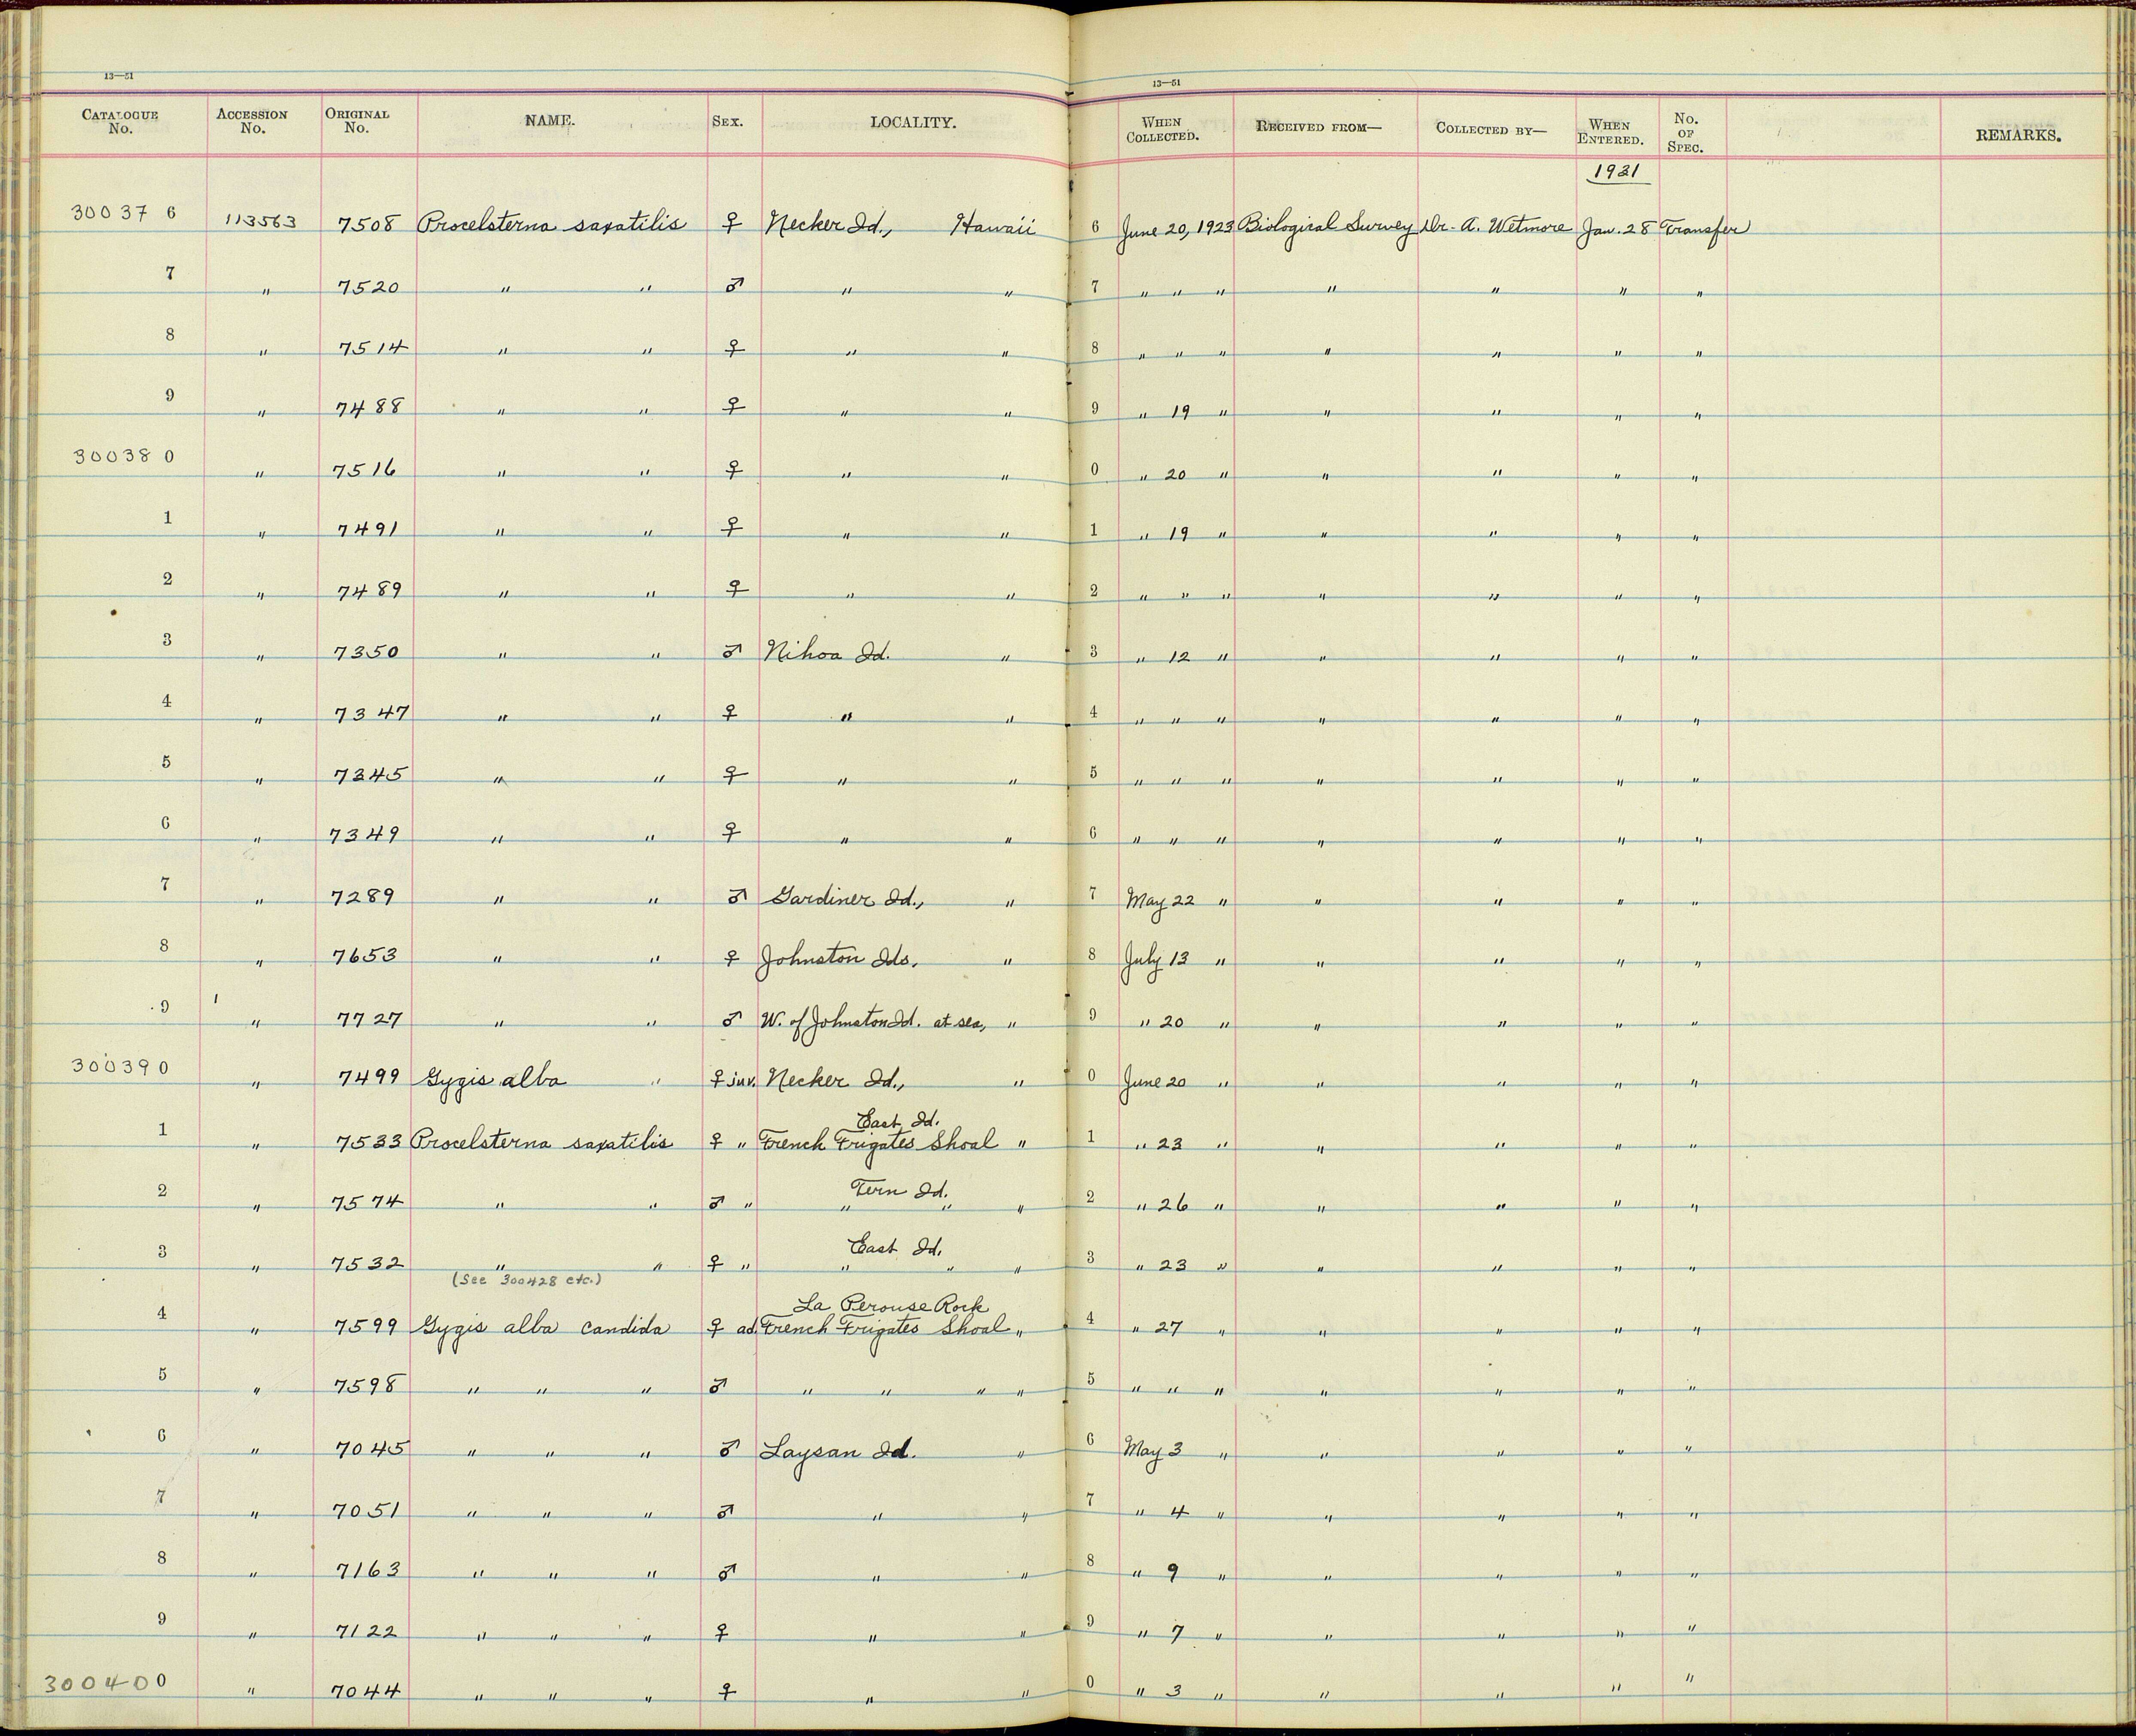 13—51 13—51
CATALOGUE No. ACCESSION No. ORIGINAL No. NAME. SEX. LOCALITY. WHEN COLLECTED. RECEIVED FROM— COLLECTED BY— WHEN ENTERED. No. OF SPEC. REMARKS.
1931
30037 6 113563 7508 Procelsterna saxatilis ♀ Necker Id., Hawaii 6 June 20, 1923 Biological Survey Dr. A. Wetmore Jan. 28 Transfer
7 " 7520 " " ♂ " " 7 " " " " " " "
8 " 7514 " " ♀ " " 8 " " " " " " "
9 " 7488 " " ♀ " " 9 " 19 " " " " "
30038 0 " 7516 " " ♀ " " 0 " 20 " " " " "
1 " 7491 " " ♀ " " 1 " 19 " " " " "
2 " 7489 " " ♀ " " 2 " " " " " " "
3 " 7350 " " ♂ Nihoa Id. " 3 " 12 " " " " "
4 " 7347 " " ♀ " " 4 " " " " " " "
5 " 7345 " " ♀ " " 5 " " " " " " "
6 " 7349 " " ♀ " " 6 " " " " " " "
7 " 7289 " " ♂ Gardiner Id., " 7 May 22 " " " " "
8 " 7653 " " ♀ Johnston Ids. " 8 July 13 " " " " "
9 " 7727 " " ♂ W. of Johnston Id. at sea, " 9 " 20 " " " " "
30039 0 " 7499 Gygis alba " ♀ juv. Necker Id., " 0 June 20 " " " " "
East Id.
1 " 7533 Procelsterna saxatilis ♀ " French Frigates Shoal " 1 " 23 " " " " "
Tern Id.
2 " 7574 " " ♂ " " " " 2 " 26 " " " " "
East Id.
3 " 7532 " " ♀ " " " " 3 " 23 " " " " "
(See 300428 etc.)
La Perouse Rock
4 " 7599 Gygis alba candida ♀ ad. French Frigates Shoal " 4 " 27 " " " " "
5 " 7598 " " " ♂ " " " " 5 " " " " " " "
6 " 7045 " " " ♂ Laysan Id. " 6 May 3 " " " " "
7 " 7051 " " " ♂ " " 7 " 4 " " " " "
8 " 7163 " " " ♂ " " 8 " 9 " " " " "
9 " 7122 " " " ♀ " " 9 " 7 " " " " "
30040 0 " 7044 " " " ♀ " " 0 " 3 " " " " "